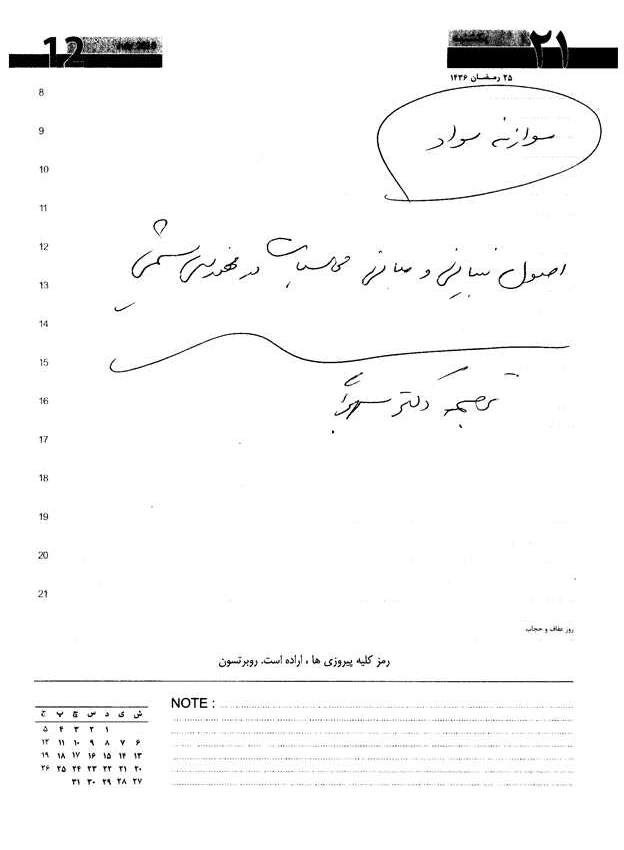 12
July 2015
یکشنبه
۲۱
۲۵ رمضان ۱۴۳۶
8
9
موازنه مواد
10
11
12
اصول بنیانی و مبانی محاسبات در مهندسی شیمی
13
14
15
16
ترجمه دکتر سهرابی
17
18
19
20
21
روز عفاف و حجاب
رمز کلیه پیروزی ها ، اراده است. روبرتسون
NOTE :
ش ی د س چ پ ج
۱ ۲ ۳ ۴ ۵
۶ ۷ ۸ ۹ ۱۰ ۱۱ ۱۲
۱۳ ۱۴ ۱۵ ۱۶ ۱۷ ۱۸ ۱۹
۲۰ ۲۱ ۲۲ ۲۳ ۲۴ ۲۵ ۲۶
۲۷ ۲۸ ۲۹ ۳۰ ۳۱